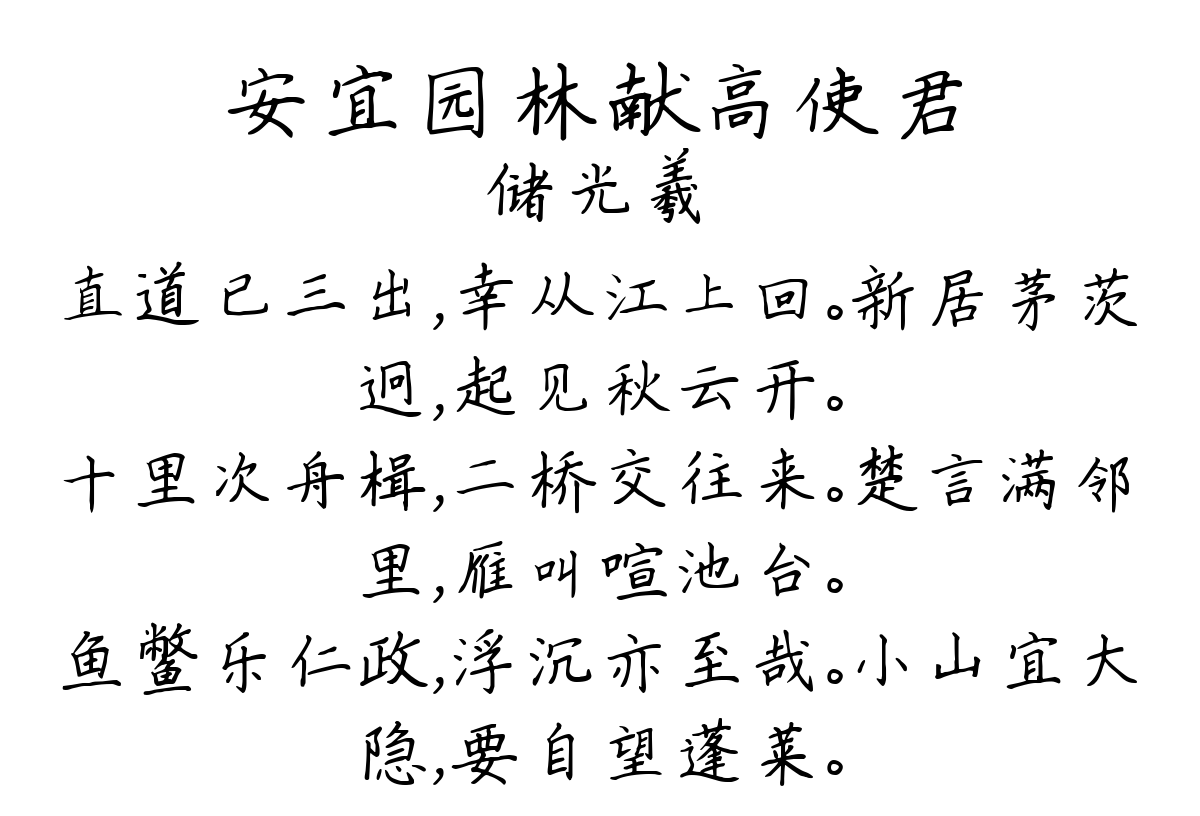 安宜园林献高使君
储光羲
直道已三出,幸从江上回。新居茅茨
迥,起见秋云开。
十里次舟楫,二桥交往来。楚言满邻
里,雁叫喧池台。
鱼鳖乐仁政,浮沉亦至哉。小山宜大
隐,要自望蓬莱。